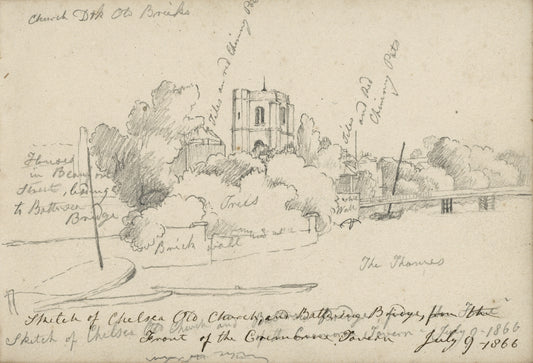 Church Drk Old Bricks
Tiles and red Chimney Pots
Tiles and Red
Chimney Pots
Houses
in Beaufort
Street, leading
to Battersea
Bridge
Trees
Wall
Brick wall
The Thames
Sketch of Chelsea Old Church and Battersea Bridge, from the
Sketch of Chelsea Old Church and
Front of the Tavern July 9 1866
July 9 - 1866